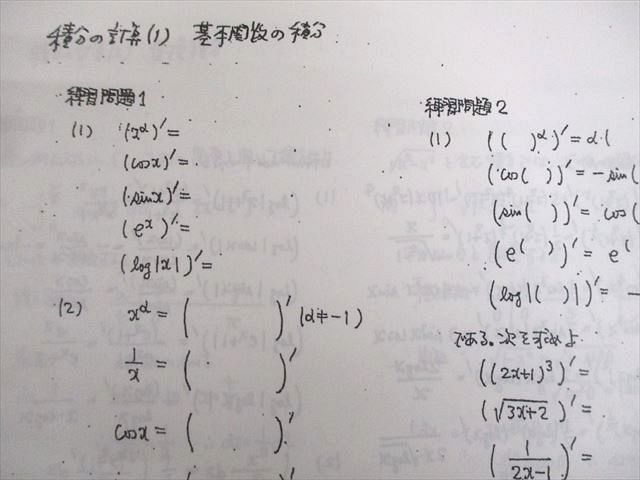 積分の計算(1) 基本関数の積分
練習問題1
(1) (x^α)'=
(cosx)'=
(sinx)'=
(e^x)'=
(log|x|)'=
(2) x^α = ( )' (α≠-1)
1/x = ( )'
cosx = ( )'
練習問題2
(1) (( )^α)'=α・(
(cos( ))'=-sin(
(sin( ))'=cos(
(e^( ))'=e^(
(log|( )|)'=
である。次を求めよ
((2x+1)^3)'=
(√3x+2)'=
(1/2x-1)'=